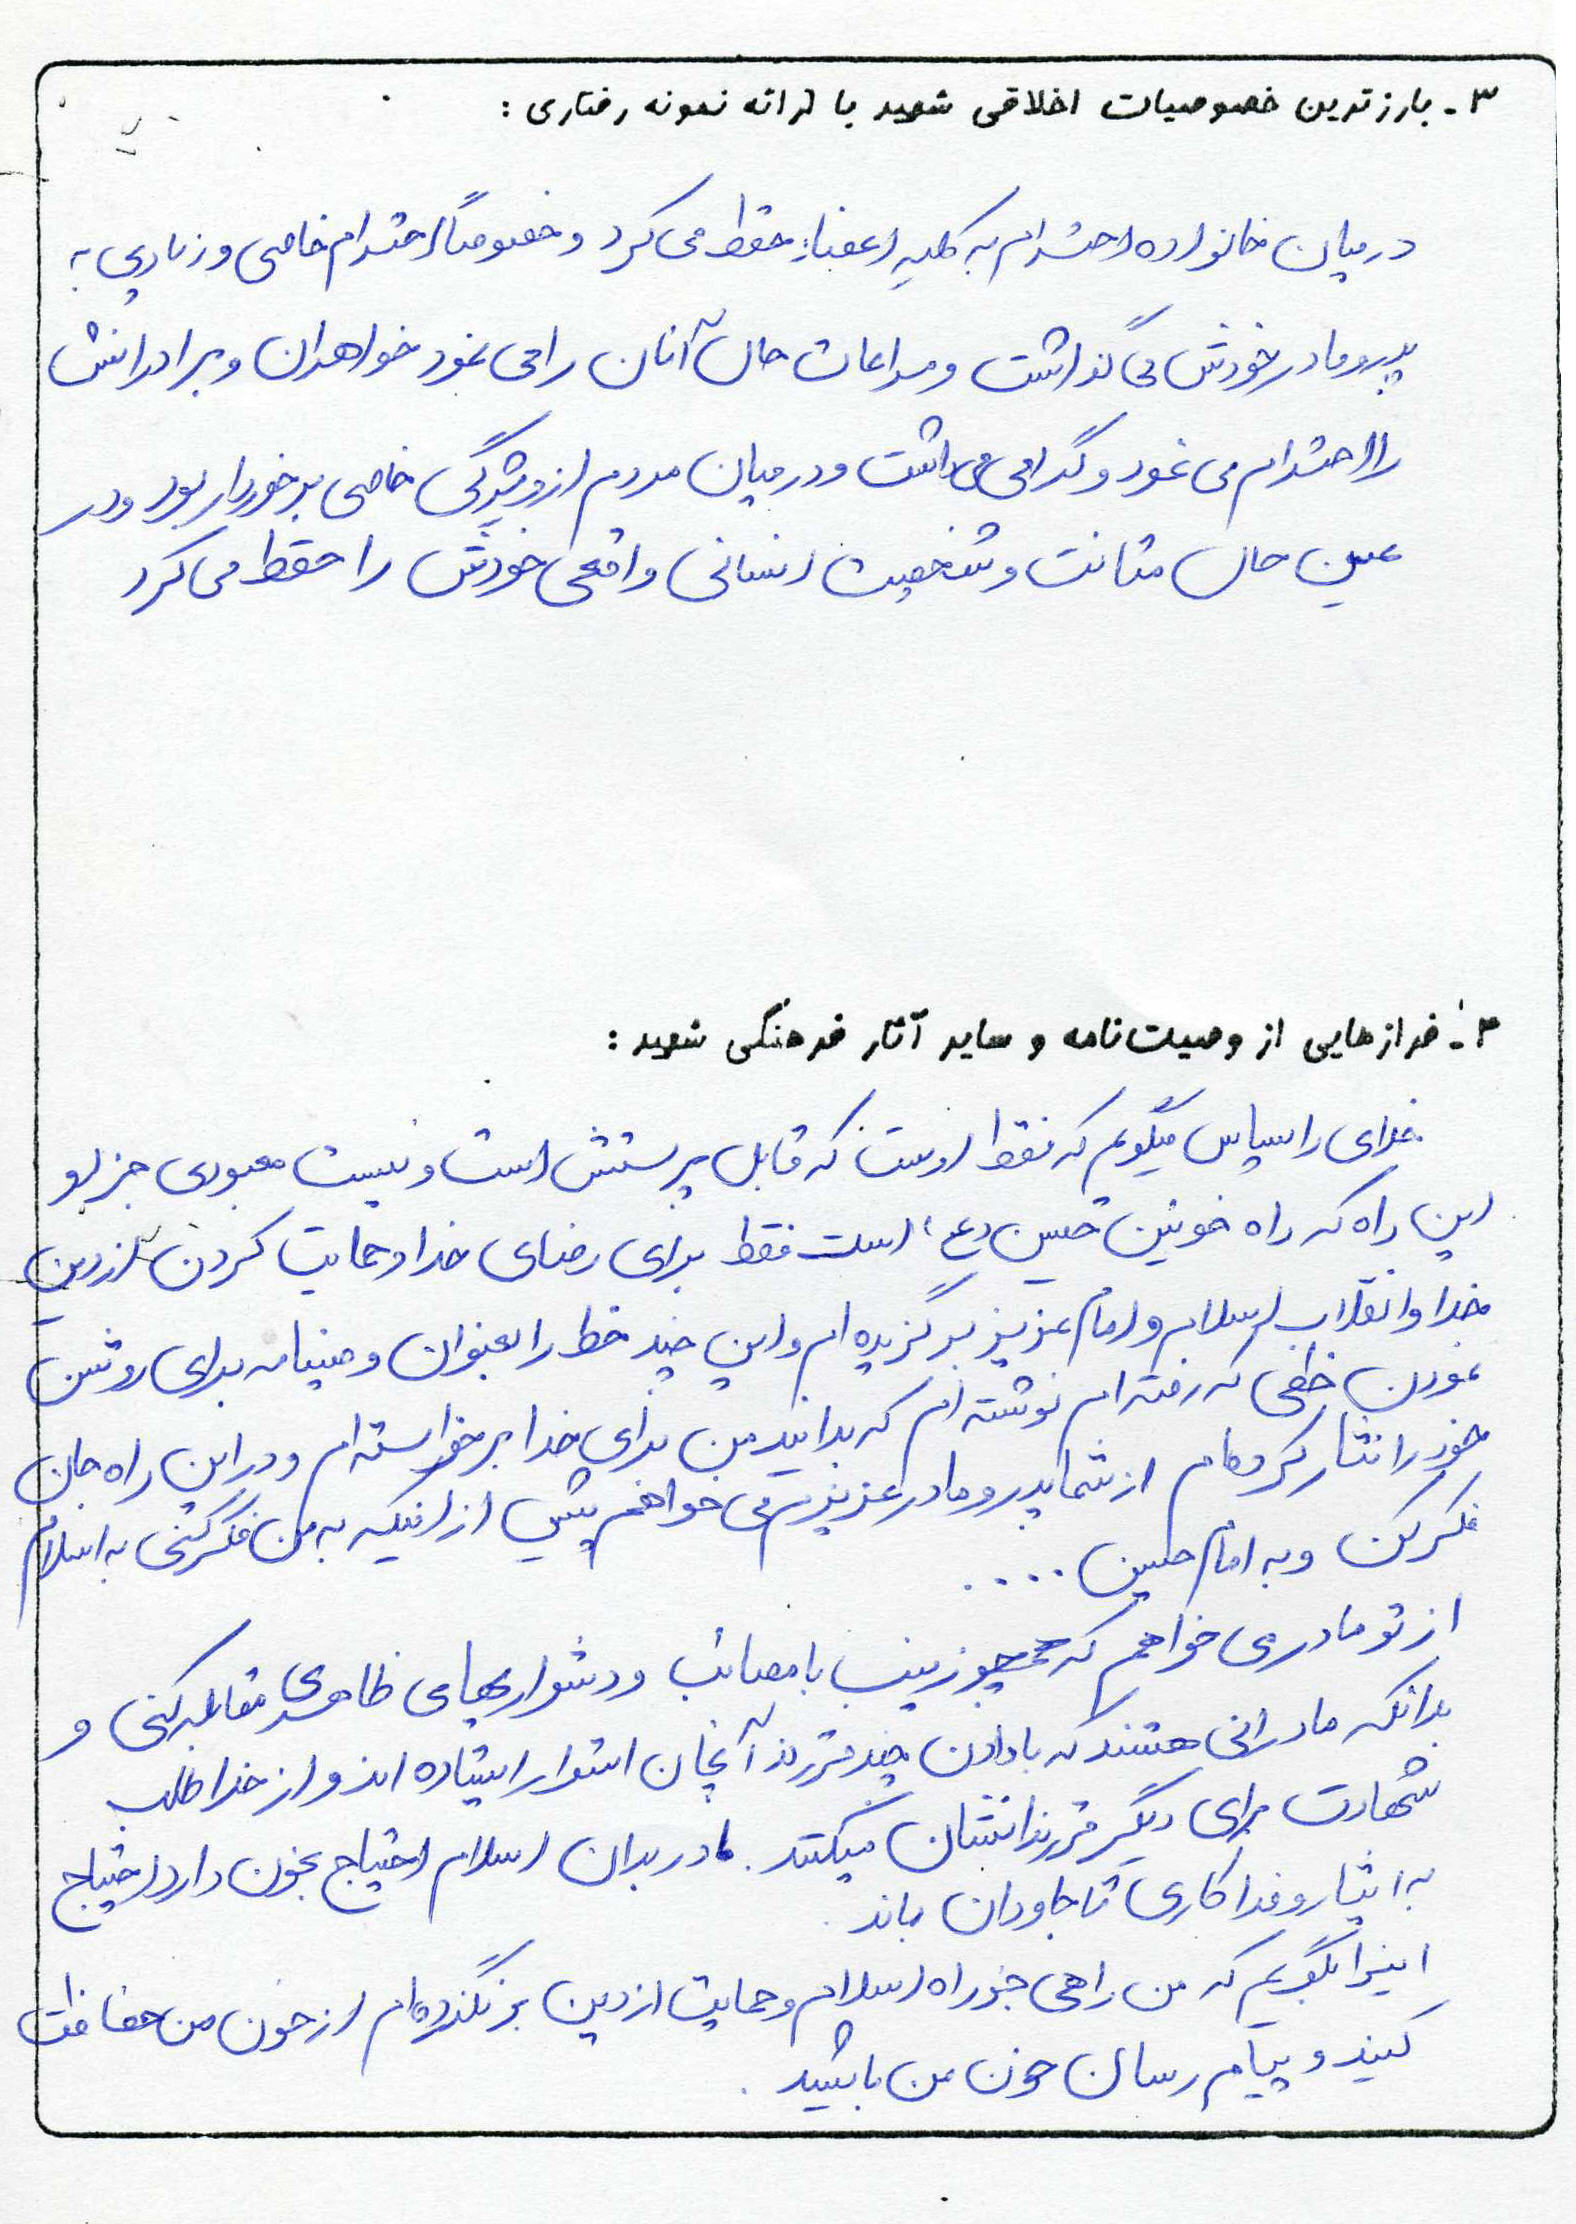 ۳- بارزترین خصوصیات اخلاقی شهید با ارائه نمونه رفتاری :
در میان خانواده احترام به کلیه اعضاء حفظ می کرد و خصوصاً احترام خاصی و زیادی به
پدر و مادر خودش می گذاشت و مراعات حال آنان را می نمود خواهران و برادرانش
را احترام می نمود و گرامی می داشت و در میان مردم از ویژگی خاصی برخوردار بود و در
عین حال متانت و شخصیت انسانی واقعی خودش را حفظ می کرد
۴- فرازهایی از وصیت نامه و سایر آثار فرهنگی شهید :
خدای را سپاس میگویم که فقط اوست که قابل پرستش است و نیست معبودی جز او
این راه که راه خونین حسین (ع) است فقط برای رضای خدا و حمایت کردن از دین
خدا و انقلاب اسلام و امام عزیز برگزیده ام و این چند خط را بعنوان وصیتنامه برای روشن
نمودن خطی که رفته ام نوشته ام که بدانید من برای خدا برخواسته ام و در این راه جان
خود را نثار کرده ام از شما پدر و مادر عزیزم می خواهم پیش از اینکه به من فکر کنی به اسلام
فکر کن و به امام حسین ....
از تو مادر می خواهم که چو زینب با مصائب و دشواریهای ظاهری مقابله کنی و
بدانکه مادرانی هستند که با دادن چند فرزند آنچنان استوار ایستاده اند و از خدا طلب
شهادت برای دیگر فرزندانشان میکنند . مادر بدان اسلام احتیاج بخون دارد احتیاج
به ایثار و فداکاری تا جاودان بماند .
اینرا بگویم که من راهی جز راه اسلام و حمایت از دین برنگزیده ام از خون من حفاظت
کنید و پیام رسان خون من باشید .